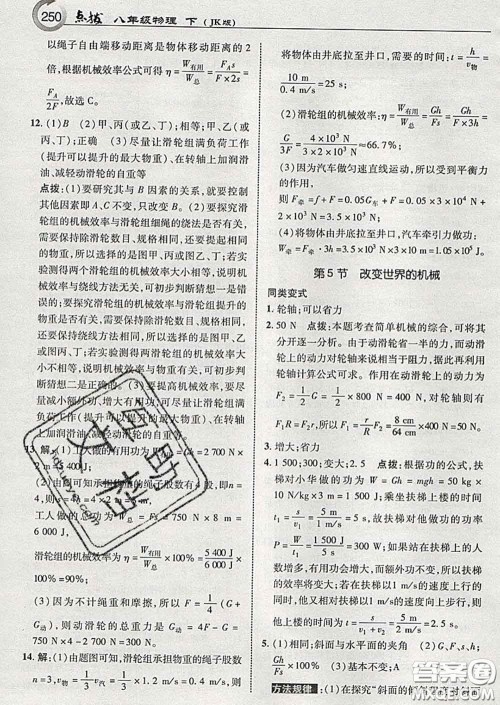 250 点拨 八年级物理 下(JK版)
以绳子自由端移动距离是物体移动距离的2
倍,根据机械效率公式可得η=W有用/W总=FAs/F×2s=
FA/2F,故选C。
12. (1)C (2)甲、丙(或乙、丁);相等;甲、乙(或
丙、丁);正确 (3)尽量让滑轮组满负荷工作
(提升可以提升的最大物重)、在转轴上加润滑
油、减轻动滑轮的自重等
点拨:(1)要研究其与B因素的关系,就要控制
其他因素A和C不变,只改变B。(2)要探究滑
轮组的机械效率与滑轮组细绳的绕法是否有关,
需要保持除滑轮数目、规格相同,还要保持提升
的物重不变,所以选择的是图甲、丙或乙、丁;若
实验测得两个滑轮组的机械效率大小相等,说明
机械效率与绕线方式无关,可初步判断猜想一是
错误的。要探究滑轮组的机械效率与滑轮组提升
的物重是否有关,需要保持滑轮数目、规格相同,
还要保持绕线方法相同,所以选择的是图甲、乙
或丙、丁;若实验测得两滑轮组的机械效率大
小不相等,说明机械效率与物重有关,可初步判
断猜想二是正确的。(3)要提高机械效率,要尽
量减小额外功、增大有用功,即尽量让滑轮组满
负荷工作(提升可以提升的最大物重)、在转轴
上加润滑油、减轻动滑轮的自重等。
13. 解:
=2 700 N×2 m=
(2)由图可知承担物体重的绳子股数n,即n=
4,则s=4h=4×2 m=8 m,
W总=Fs=750 N×8 m=
6 000 J
滑轮组的机械效率为η=W有用/W总×100%=5 400 J/6 000 J×
100%=90%
(3)因为不计绳重和摩擦,所以F=1/4(G+
G动),动滑轮的总重力是G动=4F-G=4×
750 N-2 700 N=300 N
14. 解:(1)由题图可知,滑轮组承担物重的绳子股数
n=3,v物=1/3 v汽=1/3×
物体由井底拉至井口,需要的时间t=h/v物=
10 m/0.4 m/s=25 s
(2)将物体由井底拉至井口,滑轮组的机械
效率η=W有用/W总×100%=Gh/Fs=Gh/F×3h=
G/3F=4×10³ N/3×2×10³ N≈66.7%;
(3)因为汽车做匀速直线运动,所以受到平衡力
的作用,
F牵=f+F=0.05G车+F=0.05×3×10⁴ N+
2×10³ N=3.5×10³ N
(4)将物体由井底拉至井口,汽车牵引力做功:
W牵=F牵·3h=3.5×10³ N×3×10 m=1.05×10⁶ J
第5节 改变世界的机械
同类变式
1. 轮轴;可以省力
2. 50 N 点拨:本题考查简单机械的综合,可将其
分开逐一分析。由于动滑轮省一半的力,而动滑
轮上的动力对轮轴来说相当于阻力,据此再利用
轮轴计算公式可求。在动滑轮上的动力为
F2=1/2 G=1/2×800 N=400 N,对轮轴则有
F1R=F2r,所以F1=r/R F2=8 cm/64 cm×400 N=50 N
3. 增大;省力
4. 1 500;300;变大;2.5 点拨:根据功的公式,扶
梯对小华做的功为W=Gh=mgh=50 kg×
10 N/kg×3 m=1 500 J;乘坐扶梯上楼的时间
t1=s/v1=5 m/1 m/s=5 s,故扶梯对他做功的功率
P=W/t1=1 500 J/5 s=300 W;如果站在扶梯上的人
数增多,有用功变大,而额外功不变,所以机械效
率将变大;若扶梯仍以1 m/s的速度上行,同时
他又以相对扶梯1 m/s的速度在扶梯上行走,则
他上楼的时间为t2=s/v1+v2=5 m/2 m/s=2.5 s
5. (1)相同;斜面与水平面的夹角 (2)G、h、F、s;
Gh/Fs×100% (3)基本不变;A
方法规律:(1)在探究“斜面的